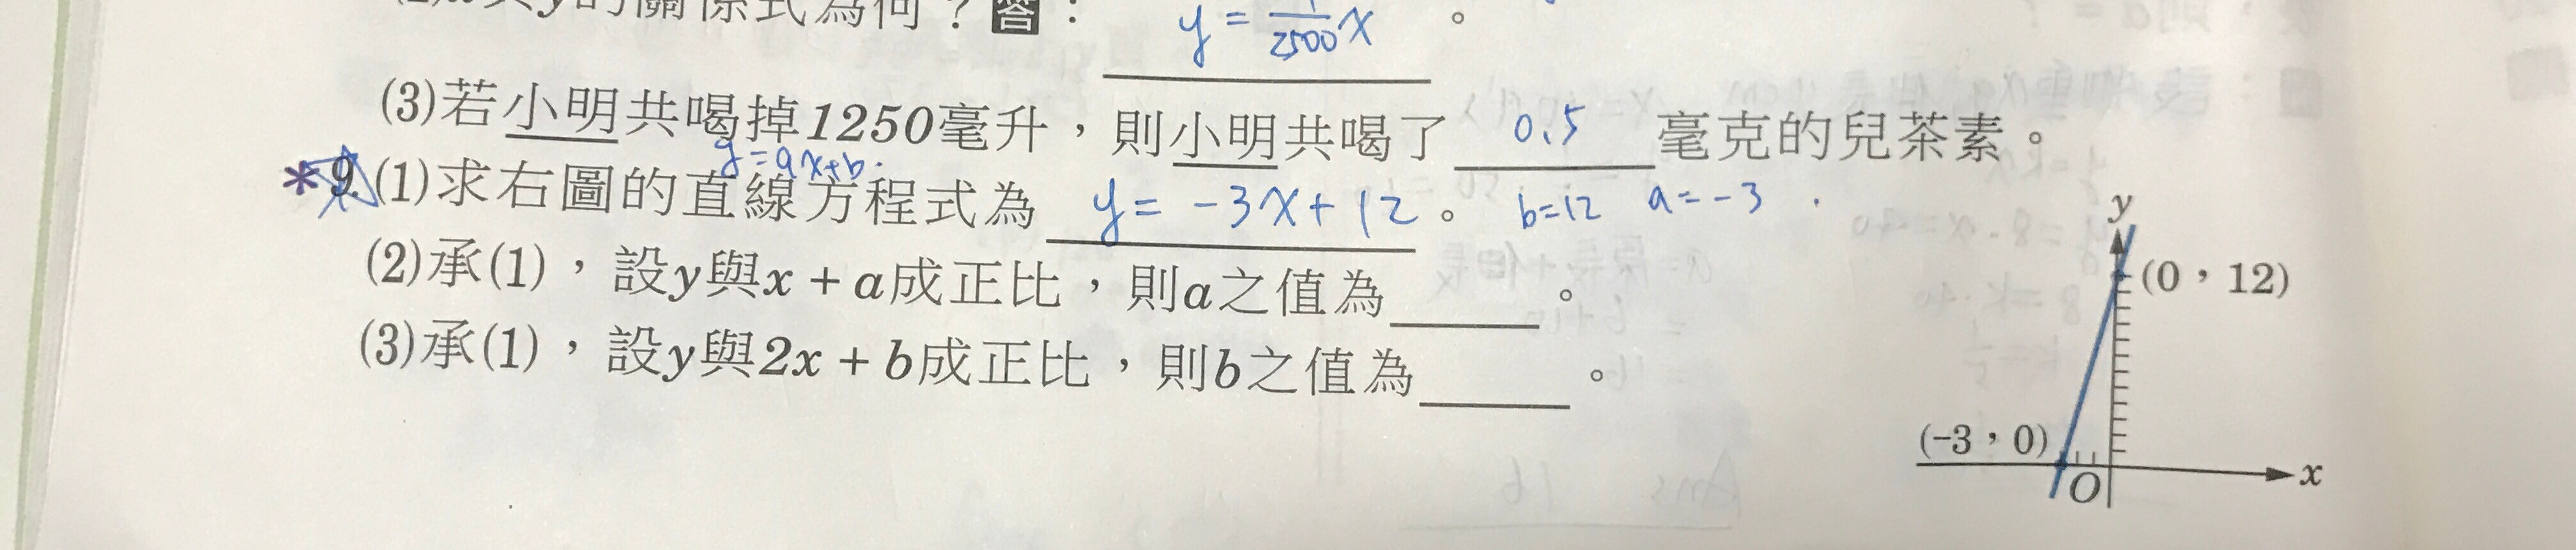 的關係式為何？答： y = 1/2500 x 。
(3)若小明共喝掉1250毫升，則小明共喝了 0.5 毫克的兒茶素。
y=ax+b.
*9.(1)求右圖的直線方程式為 y = -3x+12 。 b=12 a=-3
(2)承(1)，設y與x + a成正比，則a之值為 。
(3)承(1)，設y與2x + b成正比，則b之值為 。
y
(0，12)
(-3，0)
O
x